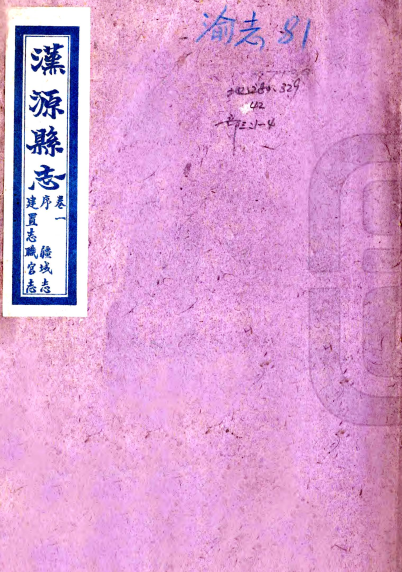 漢源縣志
卷一
序 疆域志
建置志 職官志
渝志 81
42